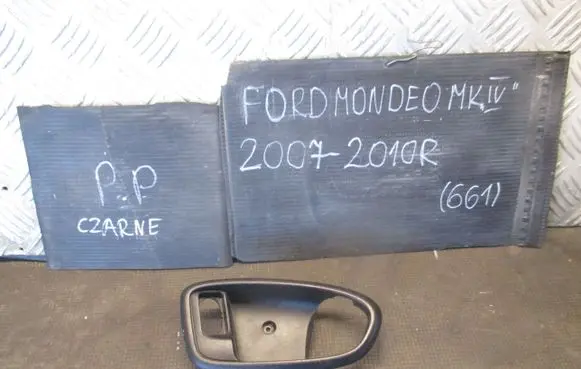 P.P
CZARNE
FORD MONDEO MK"IV"
2007-2010R
(661)